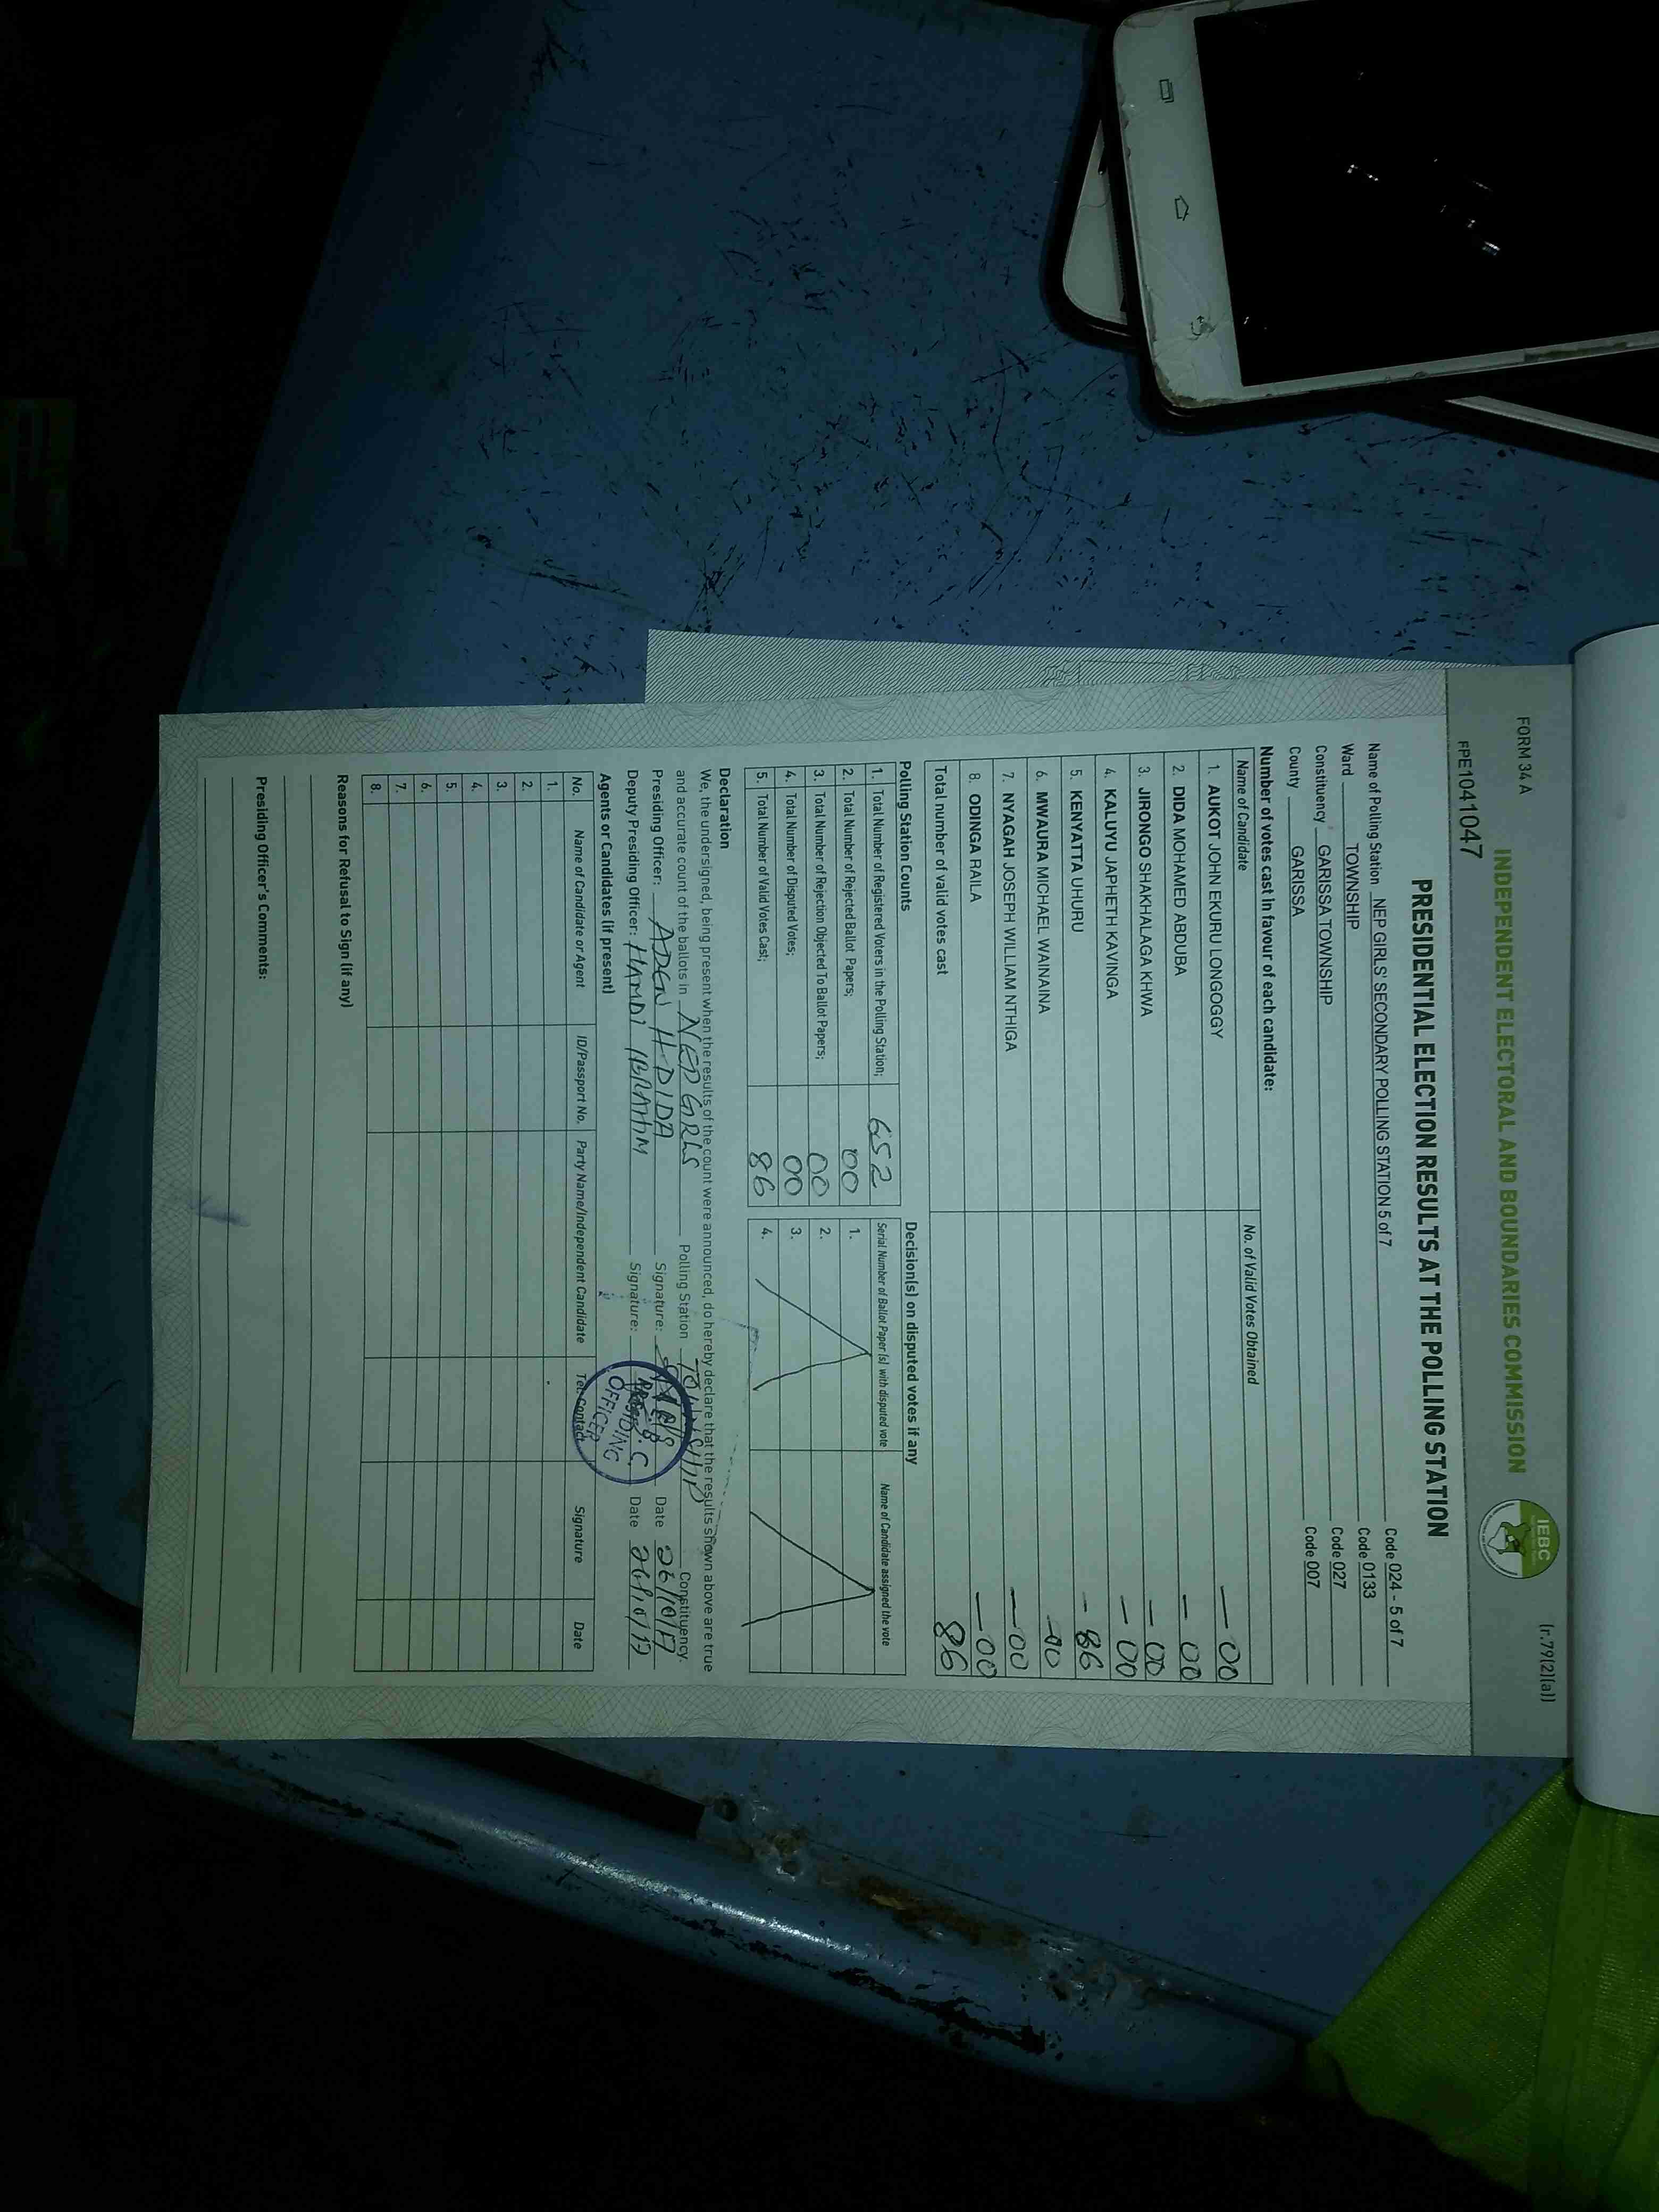 FORM 34 A
(r.79(2)(a))
INDEPENDENT ELECTORAL AND BOUNDARIES COMMISSION
IEBC
FPE1041047
PRESIDENTIAL ELECTION RESULTS AT THE POLLING STATION
Name of Polling Station NEP GIRLS' SECONDARY POLLING STATION 5 of 7 Code 024 - 5 of 7
Ward TOWNSHIP Code 0133
Constituency GARISSA TOWNSHIP Code 027
County GARISSA Code 007
Number of votes cast in favour of each candidate:
Name of Candidate No. of Valid Votes Obtained
1. AUKOT JOHN EKURU LONGOGGY — 00
2. DIDA MOHAMED ABDUBA — 00
3. JIRONGO SHAKHALAGA KHWA — 00
4. KALUYU JAPHETH KAVINGA — 00
5. KENYATTA UHURU - 86
6. MWAURA MICHAEL WAINAINA - 00
7. NYAGAH JOSEPH WILLIAM NTHIGA — 00
8. ODINGA RAILA — 00
Total number of valid votes cast 86
Polling Station Counts
1. Total Number of Registered Voters in the Polling Station; 652
2. Total Number of Rejected Ballot Papers; 00
3. Total Number of Rejection Objected To Ballot Papers; 00
4. Total Number of Disputed Votes; 00
5. Total Number of Valid Votes Cast; 86
Decision(s) on disputed votes if any
Serial Number of Ballot Paper (s) with disputed vote Name of Candidate assigned the vote
1.
2.
3.
4.
Declaration
We, the undersigned, being present when the results of the count were announced, do hereby declare that the results shown above are true
and accurate count of the ballots in NEP GIRLS Polling Station TOWNSHIP Constituency.
Presiding Officer: ADEN H. DIDA Signature: Date 26/10/17
Deputy Presiding Officer: HAMDI IBRAHIM Signature: Date 26/10/17
PRESIDING
OFFICER
Agents or Candidates (if present)
No. Name of Candidate or Agent ID/Passport No. Party Name/Independent Candidate Tel: Contact Signature Date
1.
2.
3.
4.
5.
6.
7.
8.
Reasons for Refusal to Sign (if any)
Presiding Officer's Comments: